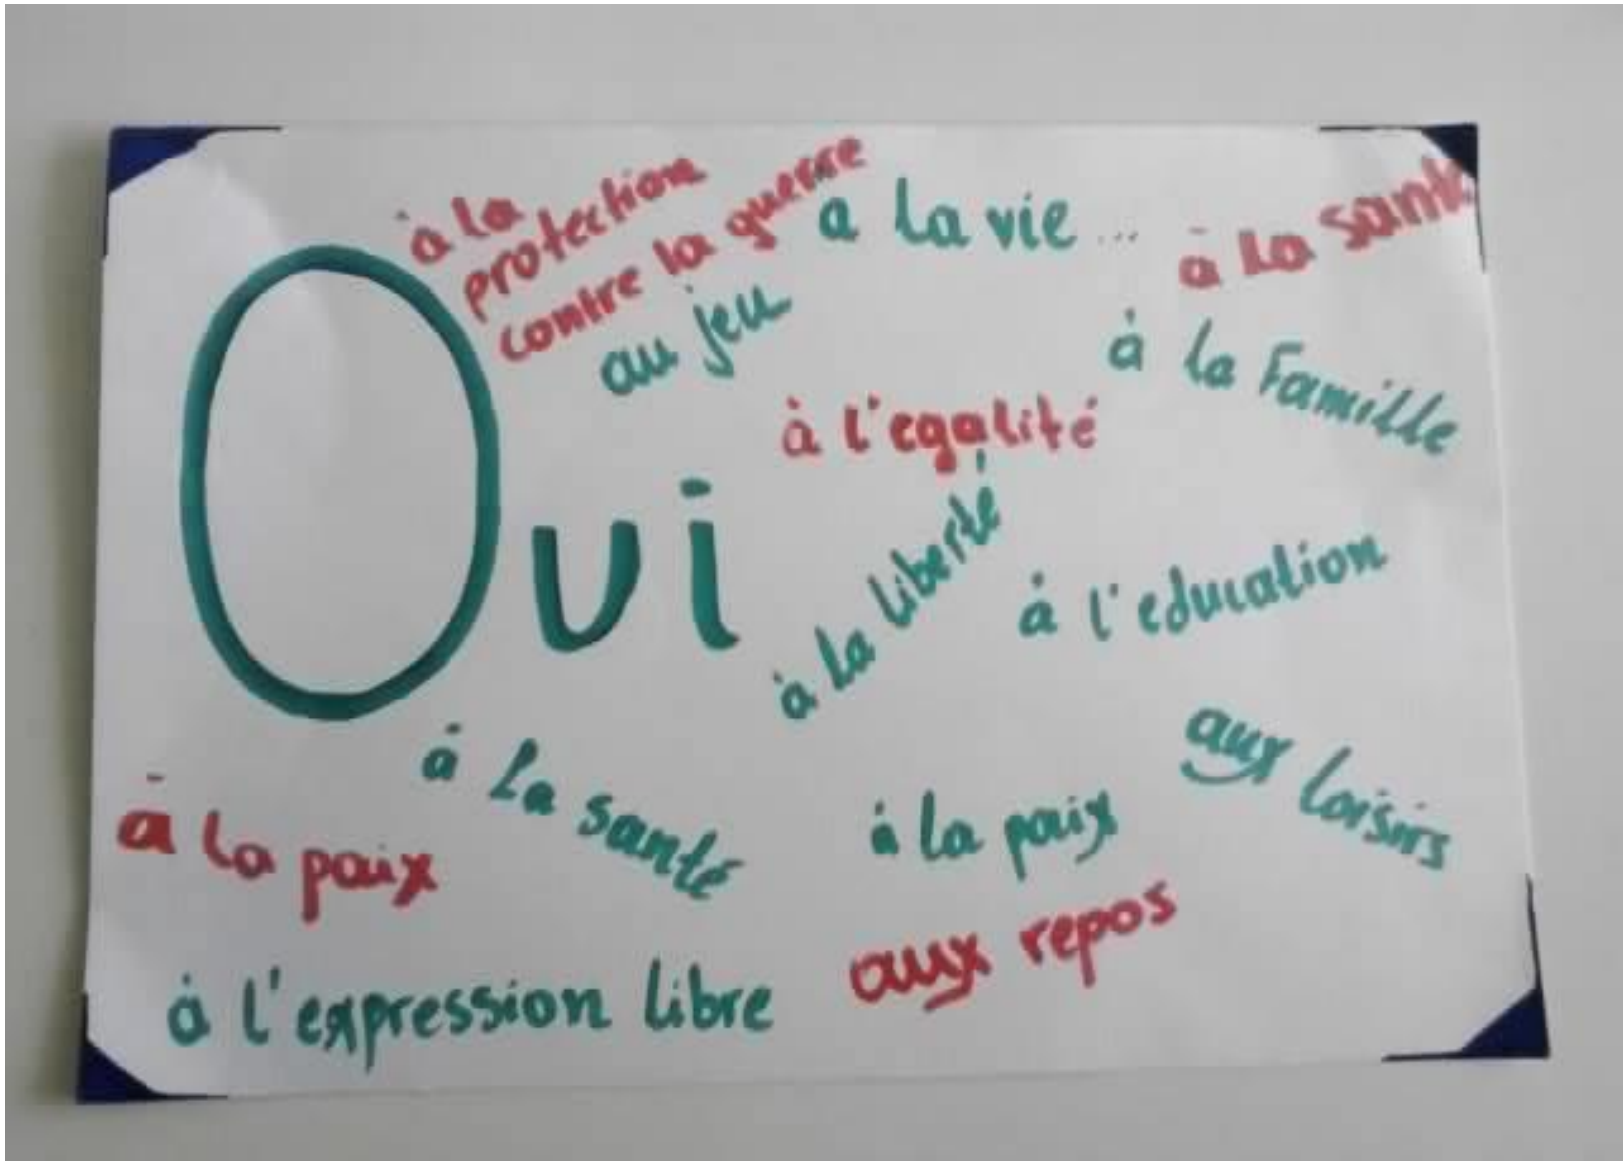 à la
protection
contre la guerre
a la vie ...
à la santé
au jeu
à la Famille
à l'egalité
Oui
à la liberté
à l'education
aux loisirs
à la santé
à la paix
à la paix
aux repos
à l'expression libre